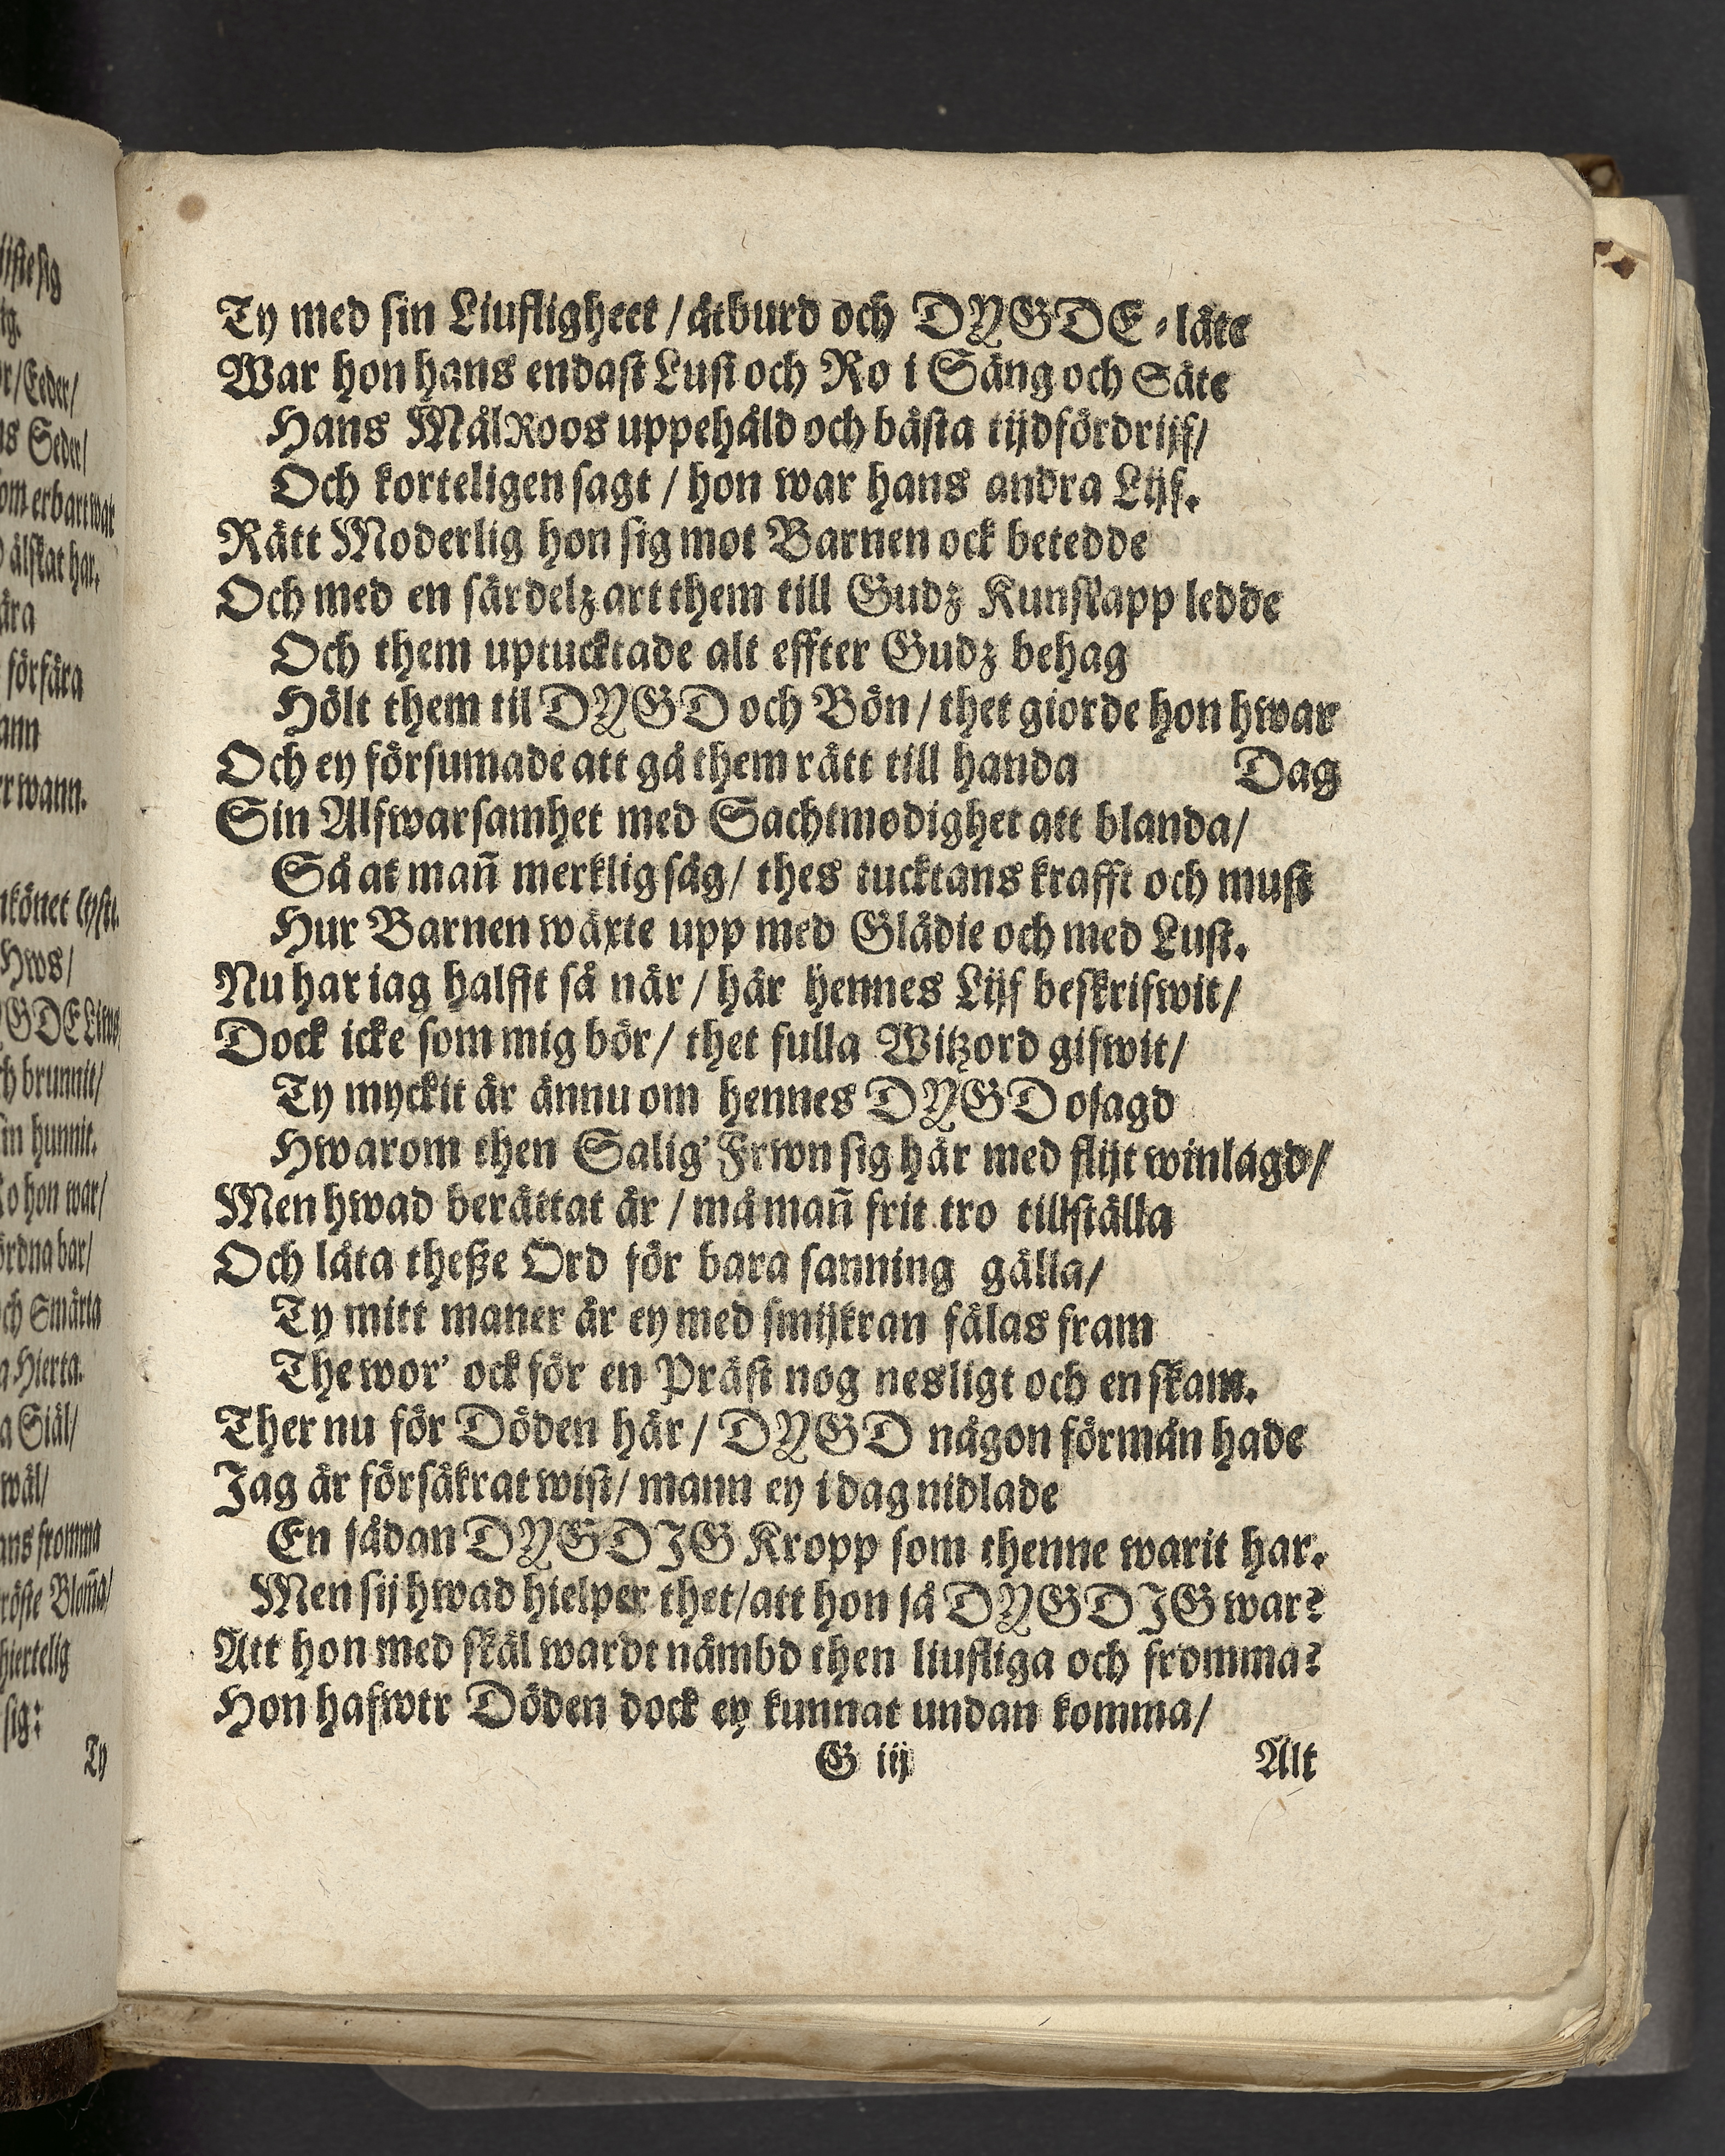 Ty med sin Liufligheet / åtburd och DYGDE-låte
War hon hans endast Lust och Ro i Säng och Säte
Hans MålRoos uppehåld och bästa tijdfördrijf/
Och korteligen sagt / hon war hans andra Lijf.
Rätt Moderlig hon sig mot Barnen ock betedde
Och med en särdelz art them till Gudz Kunskapp ledde
Och them uptucktade alt effter Gudz behag
Hölt them til DYGD och Bön / thet giorde hon hwar
Och ey försumade att gå them rätt till handa Dag
Sin Alfwarsamhet med Sachtmodighet att blanda/
Så at mañ merklig såg/ thes tucktans krafft och must
Hur Barnen wäxte upp med Glädie och med Lust.
Nu har iag halfft så när / här hennes Lijf beskrifwit/
Dock icke som mig bör/ thet fulla Witzord gifwit/
Ty myckit är ännu om hennes DYGD osagd
Hwarom then Salig' Frwn sig här med flijt winlagd/
Men hwad berättat är / må mañ frit tro tillställa
Och låta theße Ord för bara sanning gälla/
Ty mitt maner är ey med smijkran fälas fram
The wor' ock för en Präst nog nesligt och en skam.
Ther nu för Döden här / DYGD någon förmån hade
Jag är försäkrat wist/ mann ey i dag nidlade
En sådan DYGDIG Kropp som thenne warit har.
Men sij hwad hielper thet/ att hon så DYGDIG war?
Att hon med skäl wardt nämbd then liufliga och fromma?
Hon hafwer Döden dock ey kunnat undan komma/
G iij Alt